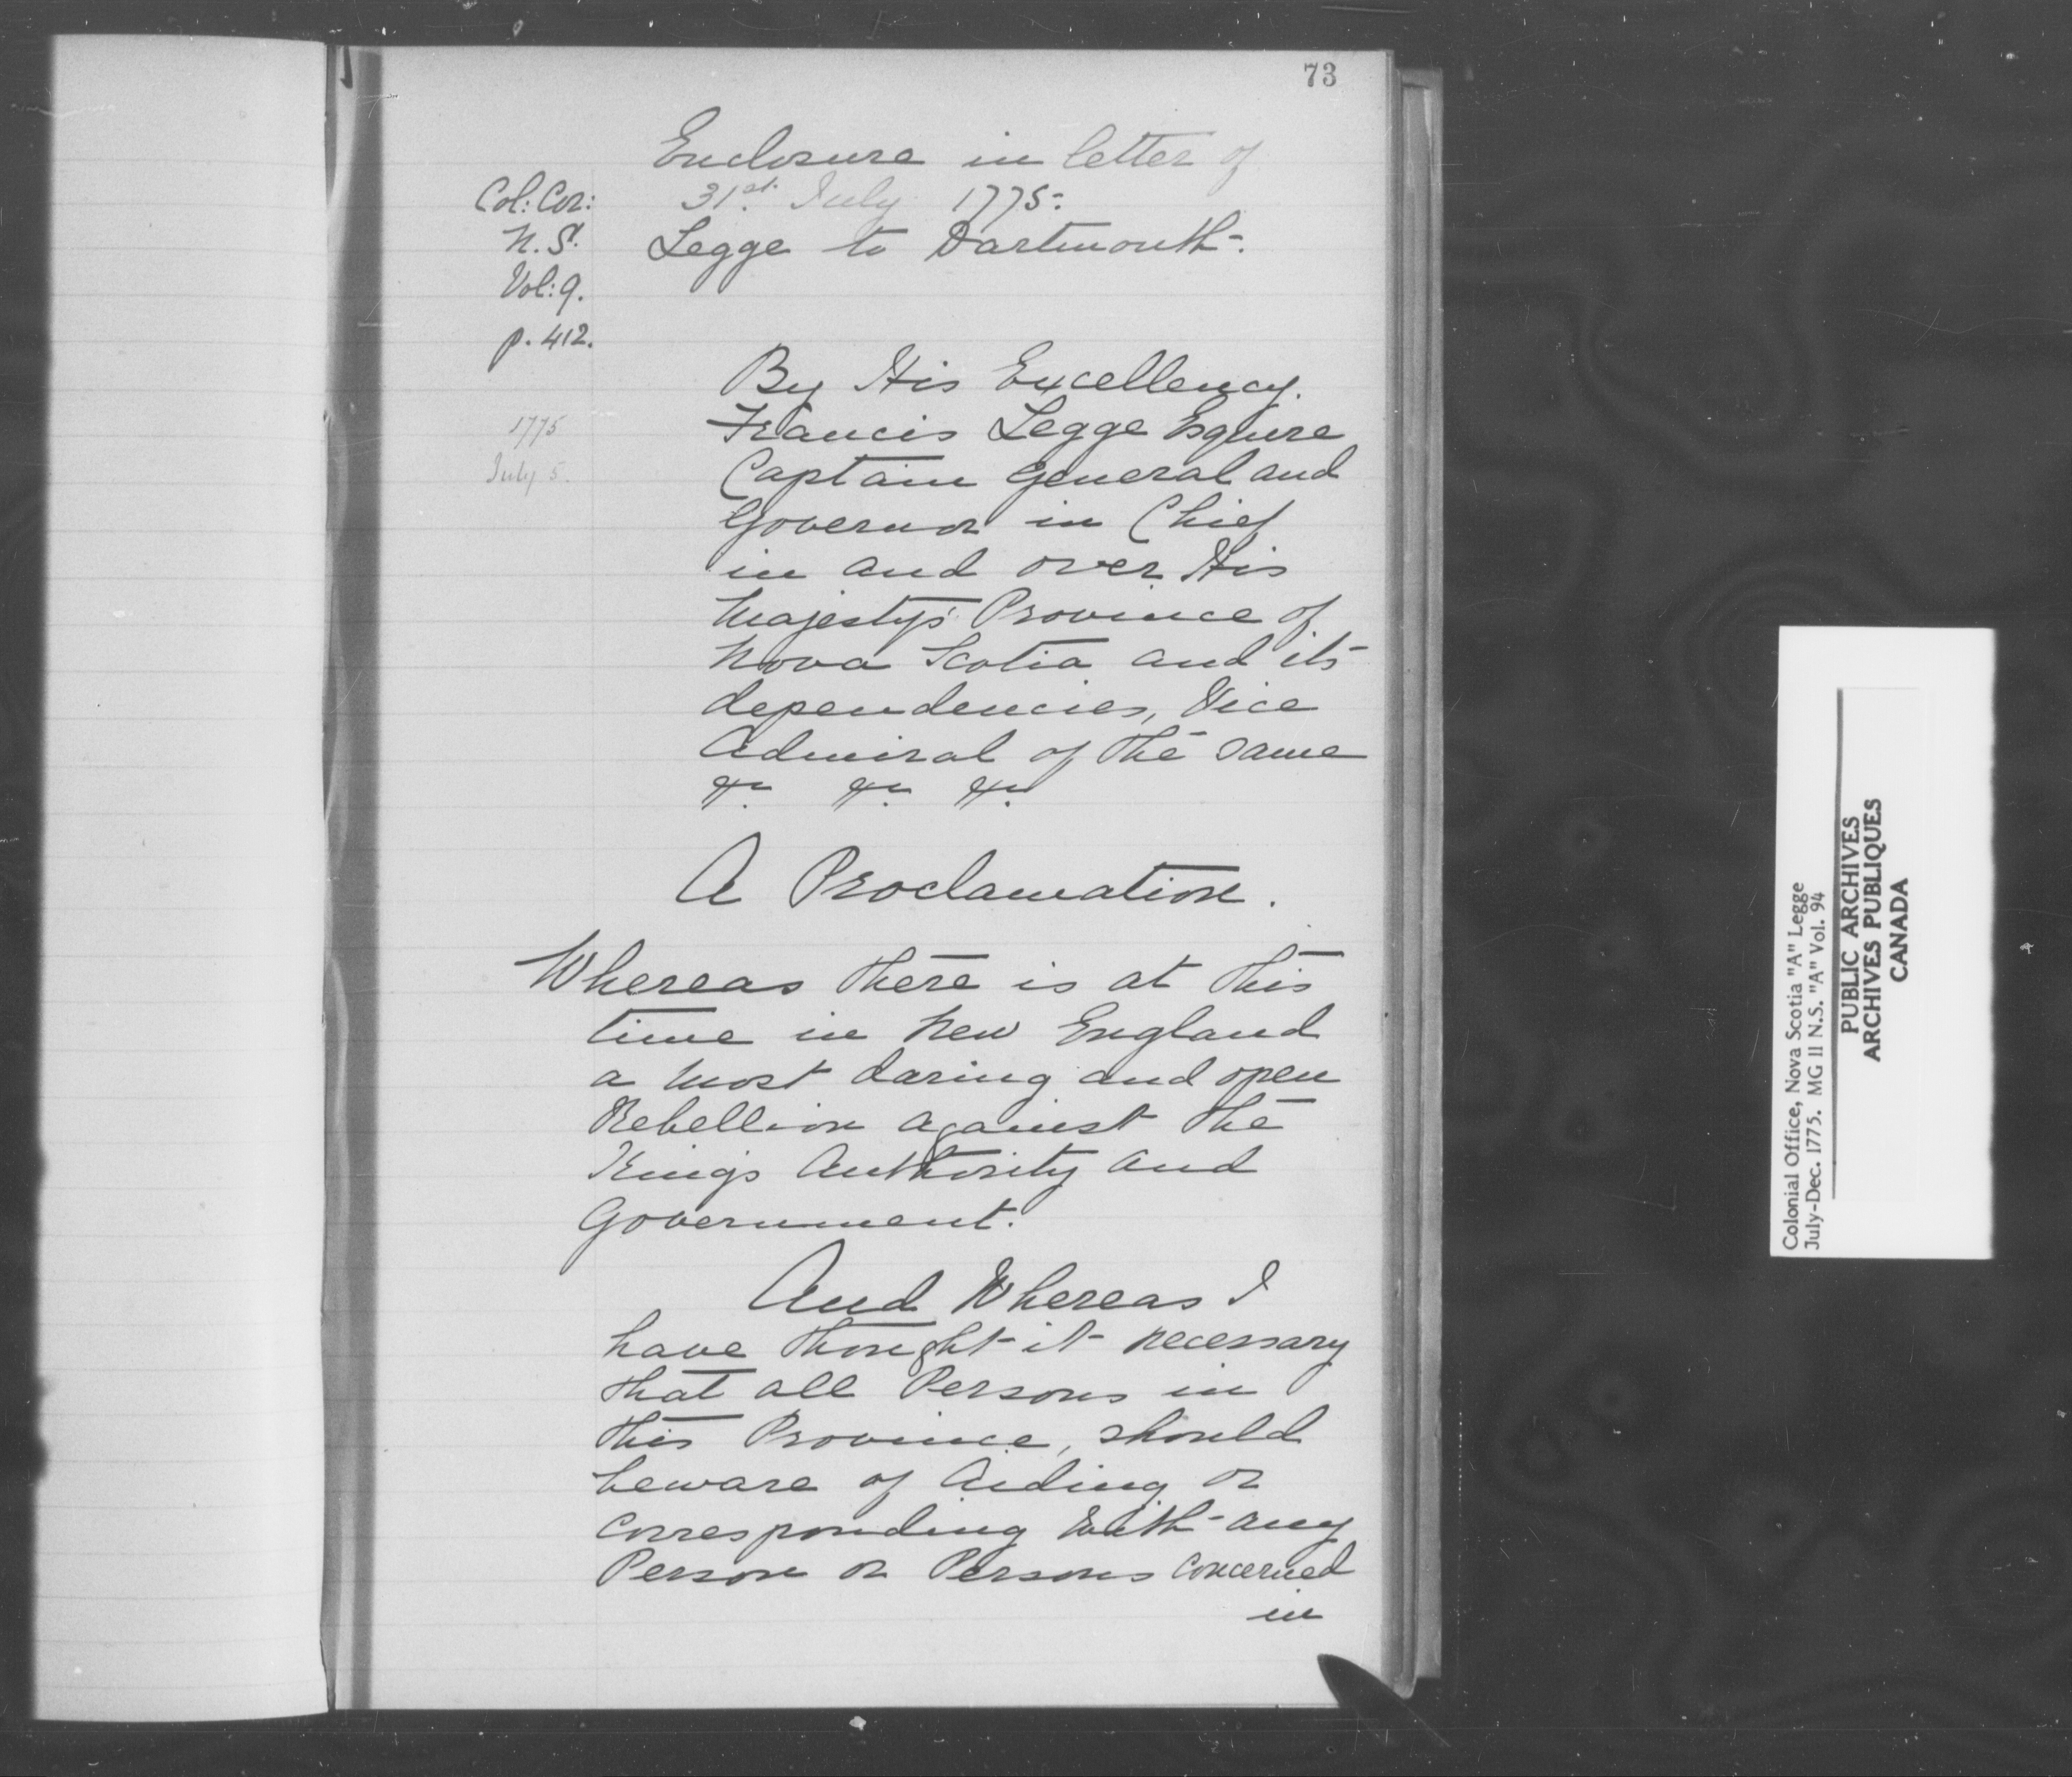 73
Enclosure in letter of
31st July 1775.
Legge to Dartmouth.
Col: Cor:
N.S.
Vol: 9.
p. 412.
1775
July 5.
By His Excellency.
Francis Legge Esquire
Captain General and
Governor in Chief
in and over His
Majesty's Province of
Nova Scotia and its
dependencies, Vice
Admiral of the same
&c. &c. &c.
A Proclamation.
Whereas there is at this
time in New England
a most daring and open
Rebellion against the
King's Authority and
Government.
And Whereas I
have thought it necessary
that all Persons in
this Province, should
beware of Aiding or
corresponding with any
Person or Persons concerned
in
Colonial Office, Nova Scotia "A" Legge
July-Dec. 1775. MG 11 N.S. "A" Vol. 94
PUBLIC ARCHIVES
ARCHIVES PUBLIQUES
CANADA